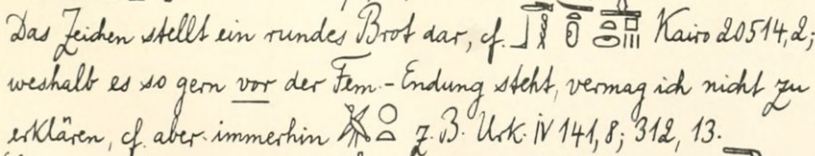 Das Zeichen stellt ein rundes Brot dar, cf. Kairo 20514,2;
weshalb es so gern vor der Fem.-Endung steht, vermag ich nicht zu
erklären, cf. aber immerhin z. B. Urk. IV 141, 8; 312, 13.